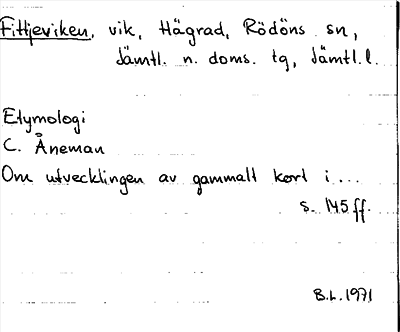 Fittjeviken, vik, Hägrad, Rödöns sn,
Jämtl. n. doms. tg, Jämtl. l.
Etymologi
C. Åneman
Om utvecklingen av gammalt kort i ...
s. 145 ff.
B.L. 1971